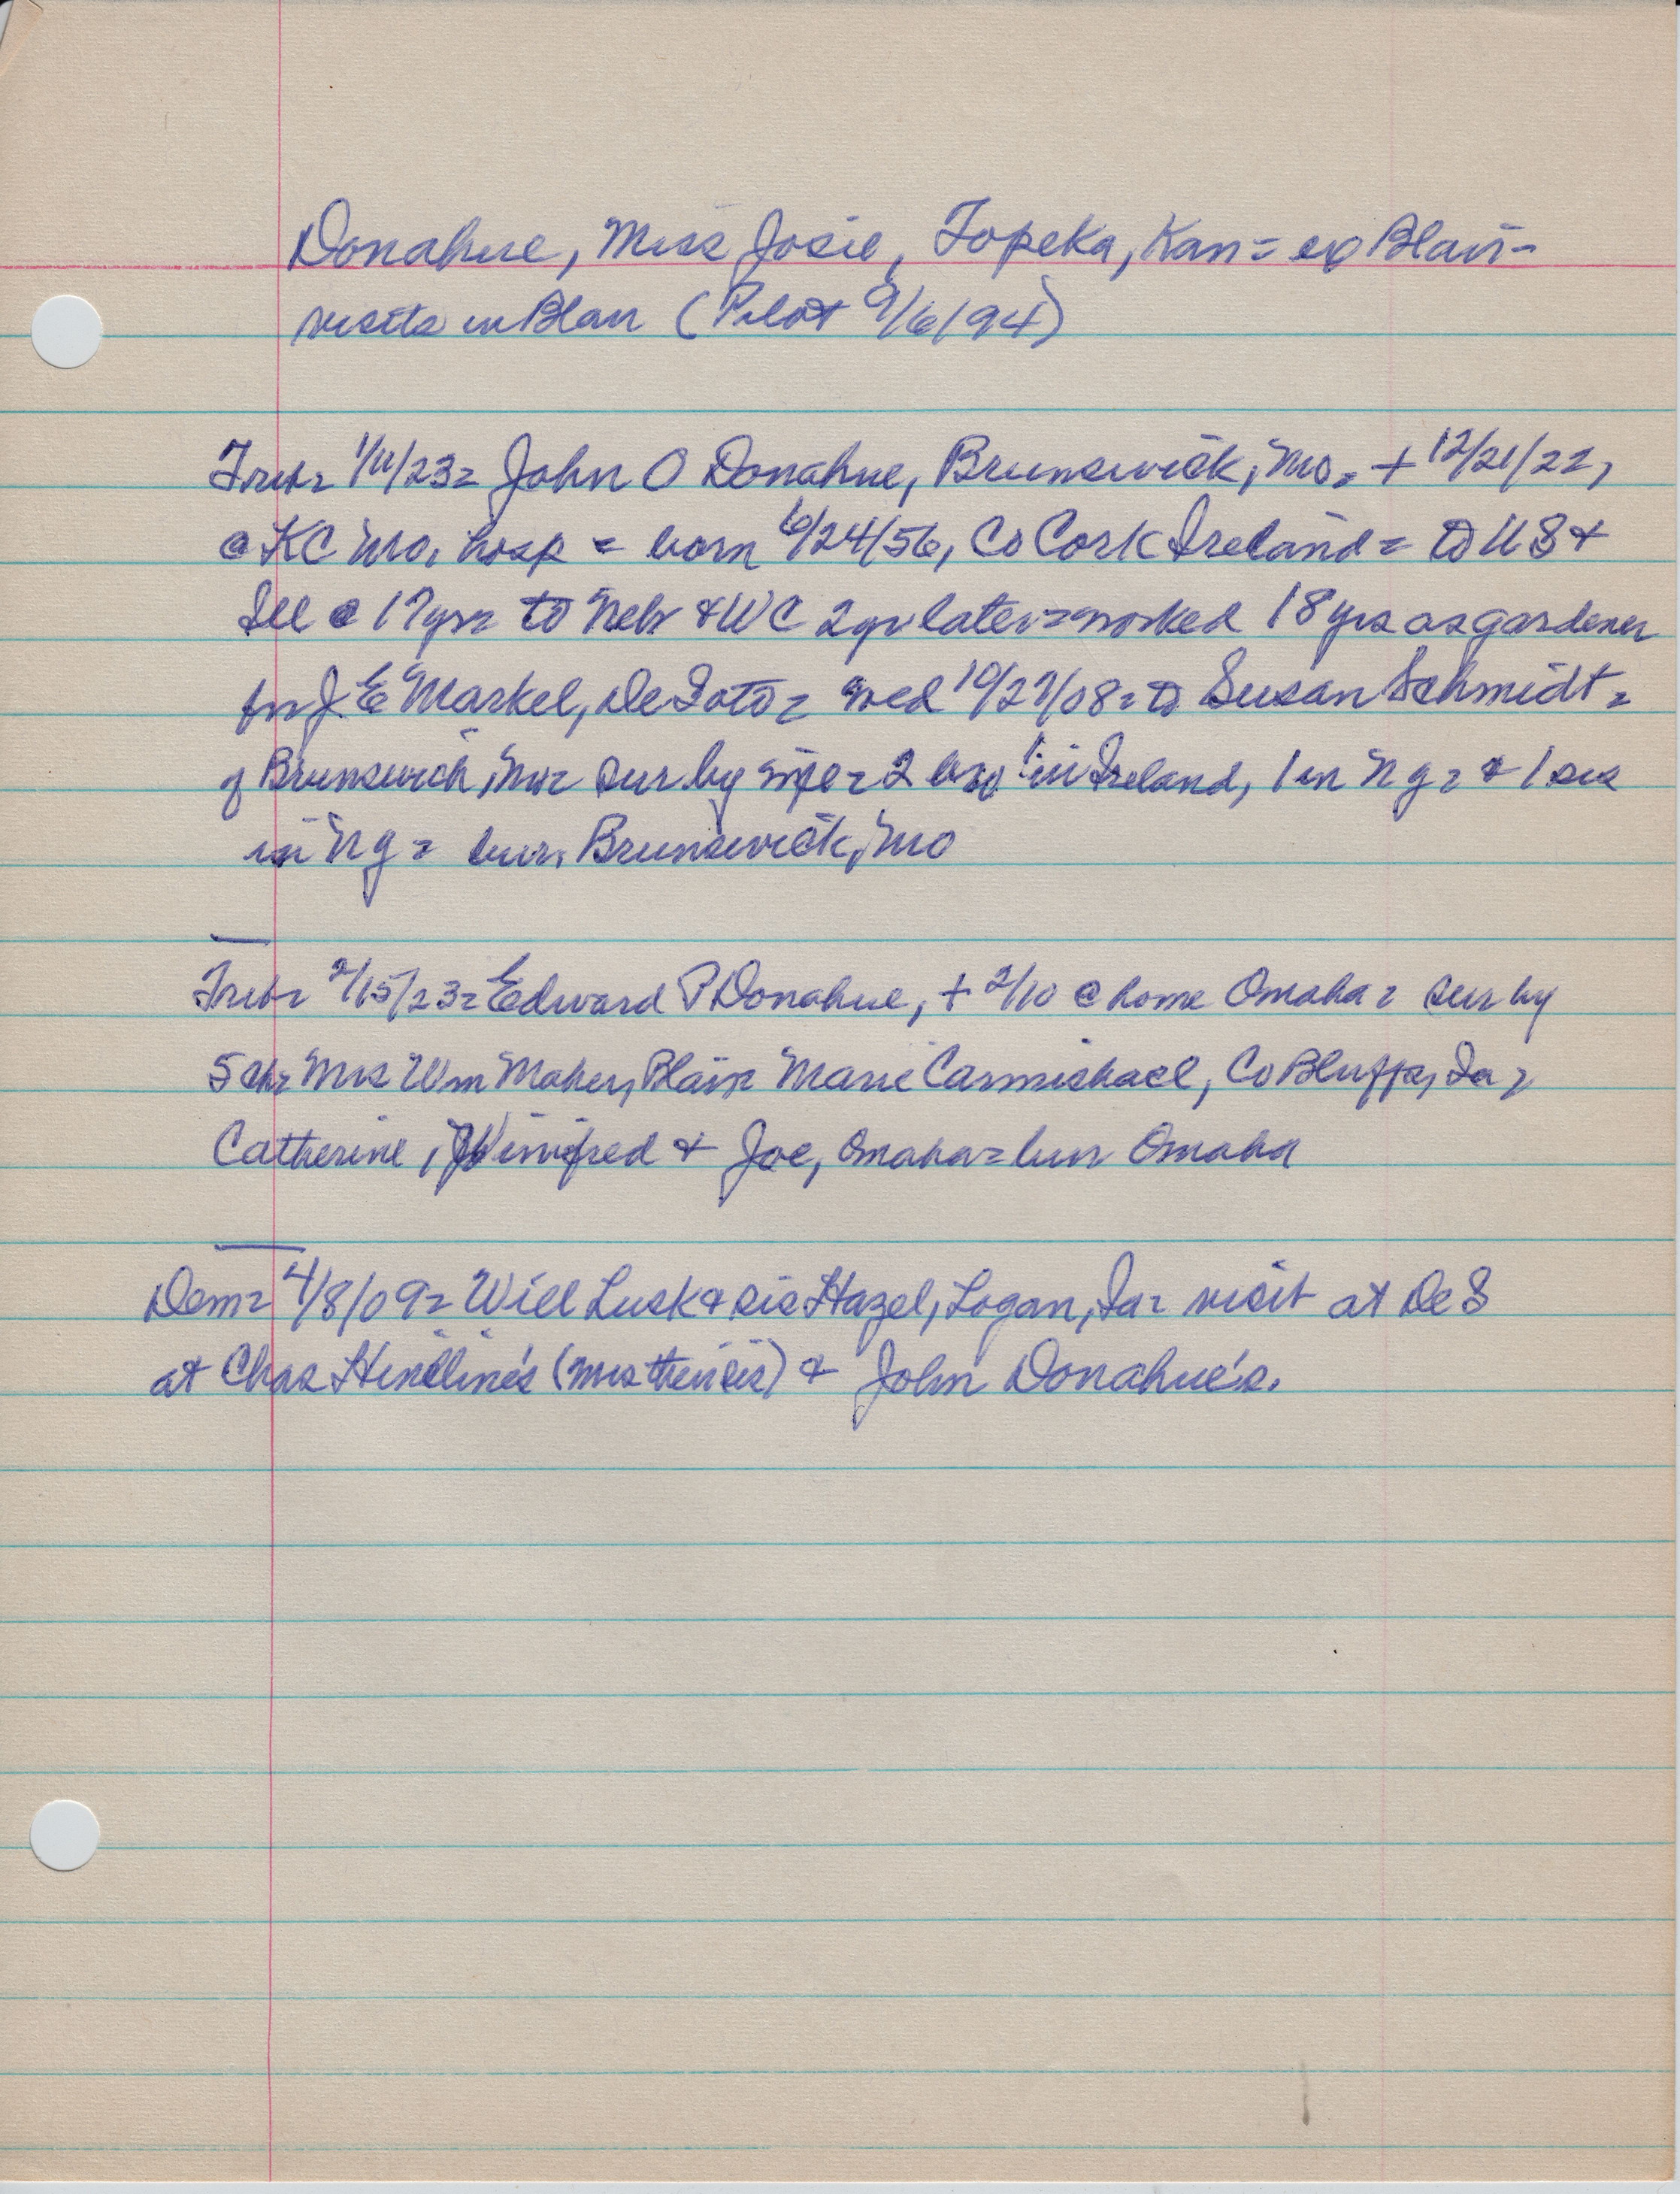 Donahue, Miss Josie, Topeka, Kan = ex Blair =
visits in Blair (Pilot 9/6/94)
Trib = 1/11/23 = John O Donahue, Brunswick, Mo. + 12/21/22,
@ KC Mo, hosp = born 6/24/56, Co Cork Ireland = to US +
Ill @ 17 yrs = to Neb & WC 2 yr later = worked 18 yrs as gardener
for J E Markel, DeSoto = wed 10/27/08 = to Susan Schmidt =
of Brunswick, Mo = sur by wife = 2 bro 1 in Ireland, 1 in N Y = & 1 sis
in N Y = bur. Brunswick, Mo
Trib = 2/15/23 = Edward P Donahue, + 2/10 @ home Omaha = sur by
5 ch = Mrs Wm Maher, Blair = Marie Carmichael, Co Bluffs, Ia =
Catherine, Winifred & Joe, Omaha = bur Omaha
Dem = 4/8/09 = Will Lusk & sis Hazel, Logan, Ia = visit at De S
at Chas Hineline's (Mrs their sis) & John Donahue's.